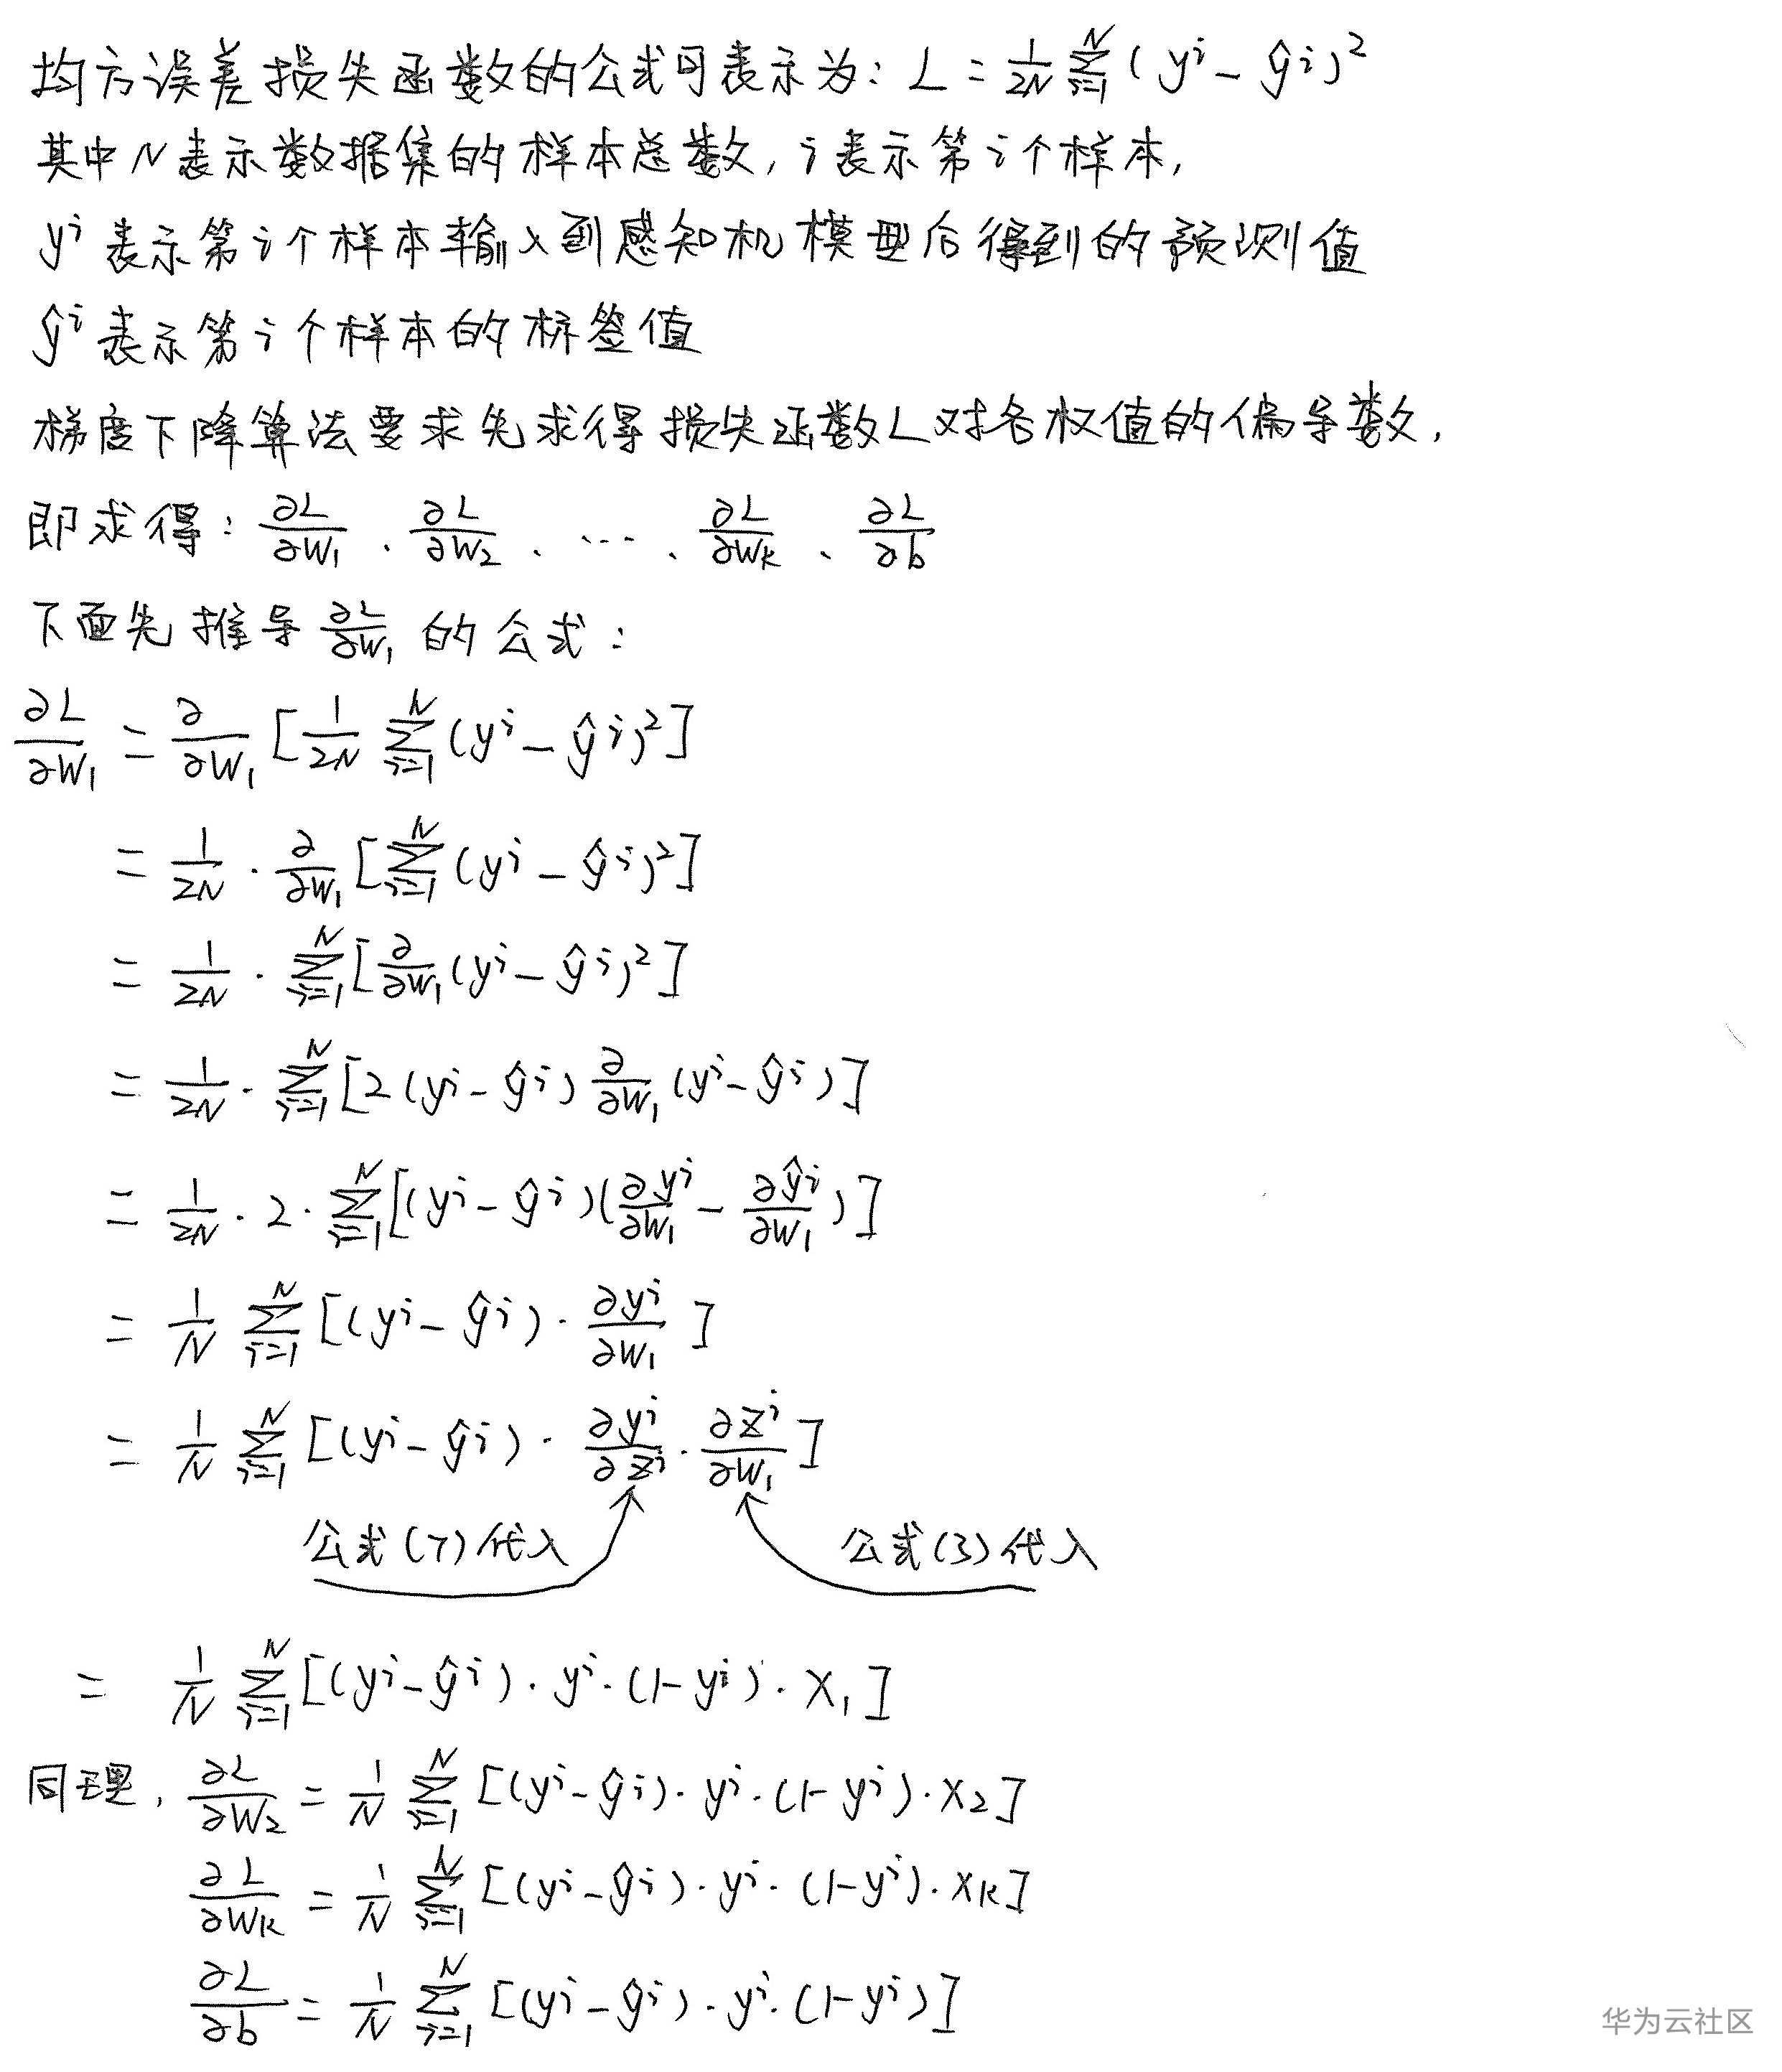 均方误差损失函数的公式可表示为: L = 1/2N ∑_{i=1}^{N} (y^i - ŷ^i)^2
其中N表示数据集的样本总数, i表示第i个样本,
y^i 表示第i个样本输入到感知机模型后得到的预测值
ŷ^i 表示第i个样本的标签值
梯度下降算法要求先求得损失函数L对各权值的偏导数,
即求得: ∂L/∂W_1 、 ∂L/∂W_2 、 … 、 ∂L/∂W_k 、 ∂L/∂b
下面先推导 ∂L/∂W_1 的公式:
∂L/∂W_1 = ∂/∂W_1 [1/2N ∑_{i=1}^{N} (y^i - ŷ^i)^2]
= 1/2N · ∂/∂W_1 [∑_{i=1}^{N} (y^i - ŷ^i)^2]
= 1/2N · ∑_{i=1}^{N} [∂/∂W_1 (y^i - ŷ^i)^2]
= 1/2N · ∑_{i=1}^{N} [2 (y^i - ŷ^i) ∂/∂W_1 (y^i - ŷ^i)]
= 1/2N · 2 · ∑_{i=1}^{N} [(y^i - ŷ^i)(∂y^i/∂W_1 - ∂ŷ^i/∂W_1)]
= 1/N ∑_{i=1}^{N} [(y^i - ŷ^i) · ∂y^i/∂W_1]
= 1/N ∑_{i=1}^{N} [(y^i - ŷ^i) · ∂y^i/∂z^i · ∂z^i/∂W_1]
公式(7)代入 公式(3)代入
= 1/N ∑_{i=1}^{N} [(y^i - ŷ^i) · y^i · (1 - y^i) · X_1]
同理, ∂L/∂W_2 = 1/N ∑_{i=1}^{N} [(y^i - ŷ^i) · y^i · (1 - y^i) · X_2]
∂L/∂W_k = 1/N ∑_{i=1}^{N} [(y^i - ŷ^i) · y^i · (1 - y^i) · X_k]
∂L/∂b = 1/N ∑_{i=1}^{N} [(y^i - ŷ^i) · y^i · (1 - y^i)]
华为云社区